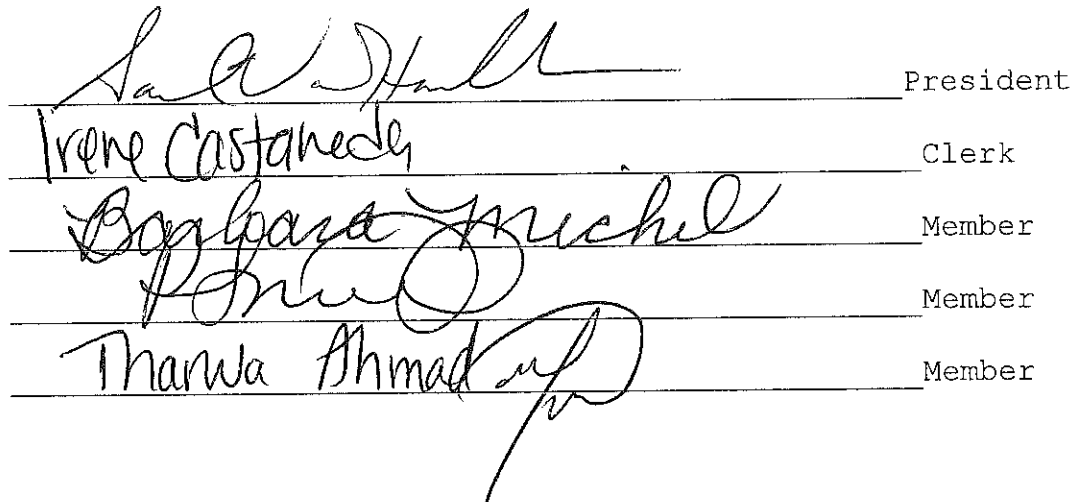 President
Irene Castaneda Clerk
Barbara Michel Member
Member
Tharwa Ahmad Member